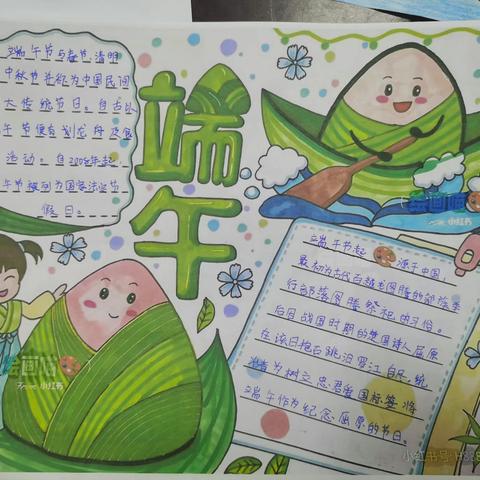 端午节与春节、清明
中秋节并称为中国民间
大传统节日。自古以
午节便有划龙舟及食
活动。自2008年起,
午节被列为国家法定节
假日。
端午
端午节起 源于中国,
最初为古代百越
行部落图腾祭祀的习俗。
后因战国时期的楚国诗人屈原
在该日抱石跳汨罗江自尽,统
治者为树立忠君爱国标签将
端午作为纪念屈原的节日。
绘画喵
小红书
绘画喵
小红书
小红书号: